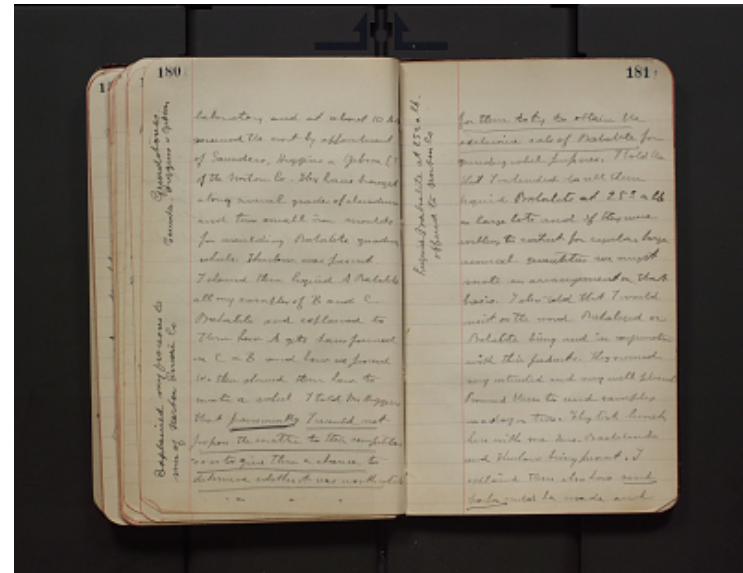 180
Grindstones
Saunders, Higgins & Jepson
Explained my process to
men of Norton Emery Co
laboratory and at about 10
received the visit by appointment
of Saunders, Higgins & Jepson
of the Norton Co. They have brought
along several grades of alundum
and two small iron moulds
for moulding Bakalite grinding
wheels. Thurlow was present
I showed them liquid A Bakalite
all my samples of B and C
Bakalite and explained to
them how A gets transformed
in C & B and how we proceed
We then showed them how to
make a wheel. I told Mr Higgins
that I would not
propose the matter to their competitors
so as to give them a chance to
determine whether it was worth while
" " "
181
Liquid Bakalite at 25¢ a lb.
offered to Norton Co
for them to try to obtain the
exclusive sale of Bakalite for
grinding wheel purposes. I told them
that I intended to sell them
liquid Bakalite at 25¢ a lb
in large lots and if they were
willing to contract for regular large
annual quantities we might
make an arrangement on that
basis. I also told that I would
insist on the word Bakalized or
Bakalite being used in connection
with this product. They seemed
very interested and very well pleased
Promised them to send samples
in a day or two. They took lunch
here with me Mrs. Baekeland
and Thurlow being present. I
explained them also how
could be made and